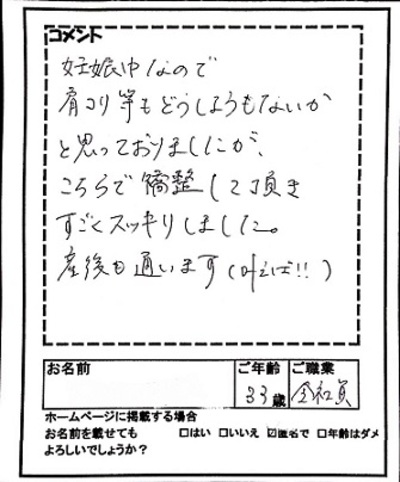 コメント
妊娠中なので
肩コリ等もどうしようもないか
と思っておりましたが、
こちらで矯整して頂き
すごくスッキリしました。
産後も通います(叶えば!!)
お名前
ご年齢 ご職業
33歳 会社員
ホームページに掲載する場合
お名前を載せても □はい □いいえ ☑匿名で □年齢はダメ
よろしいでしょうか?